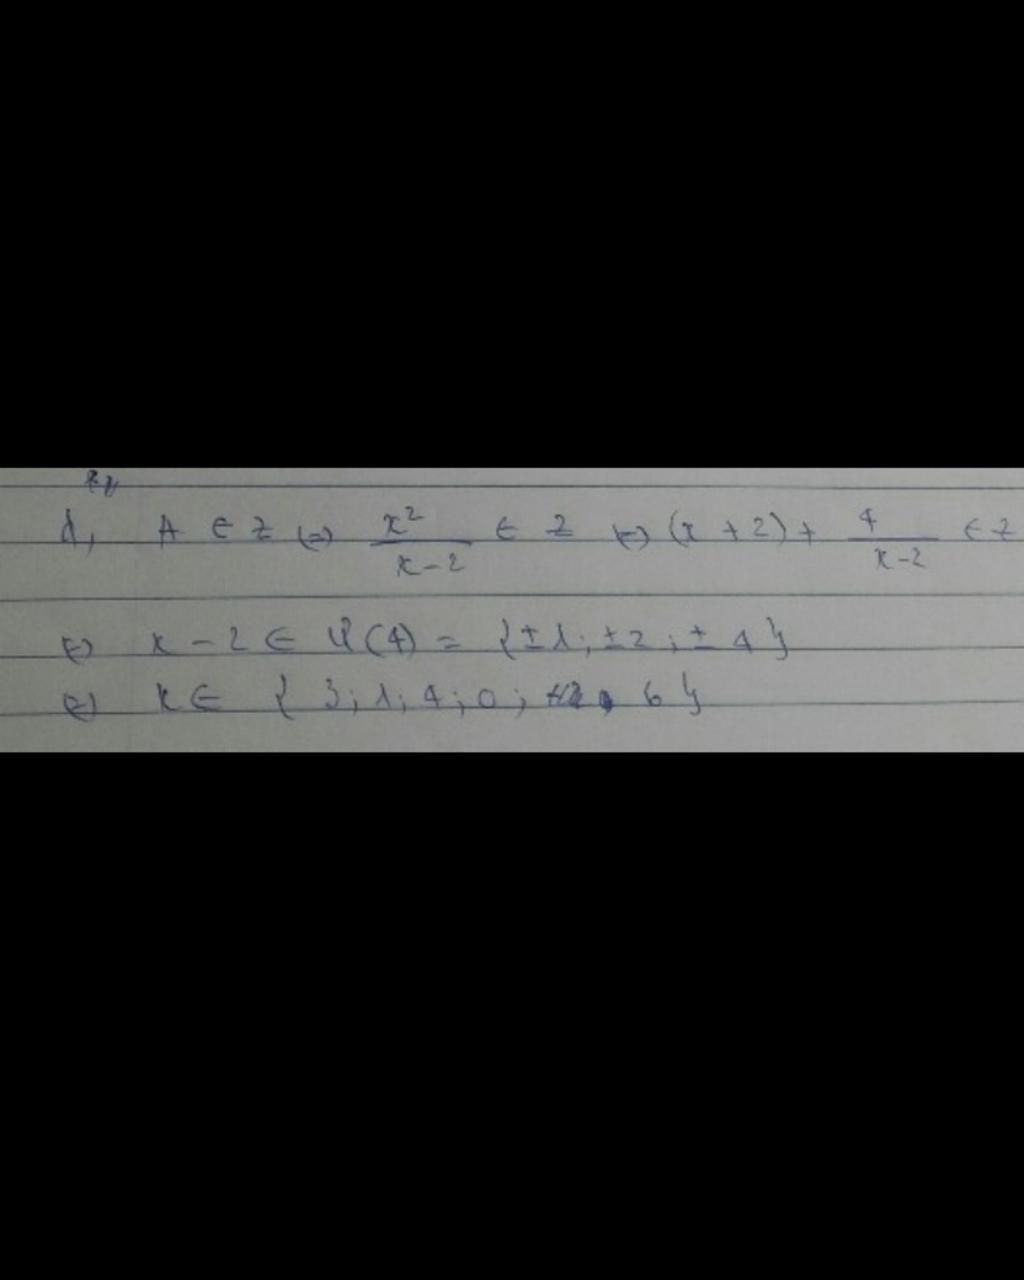 d, A ∈ Z ⇔ x²/(x-2) ∈ Z ⇔ (x + 2) + 4/(x-2) ∈ Z
⇔ x - 2 ∈ Ư(4) = {±1; ±2; ± 4}
⇔ x ∈ {3; 1; 4; 0; 6}